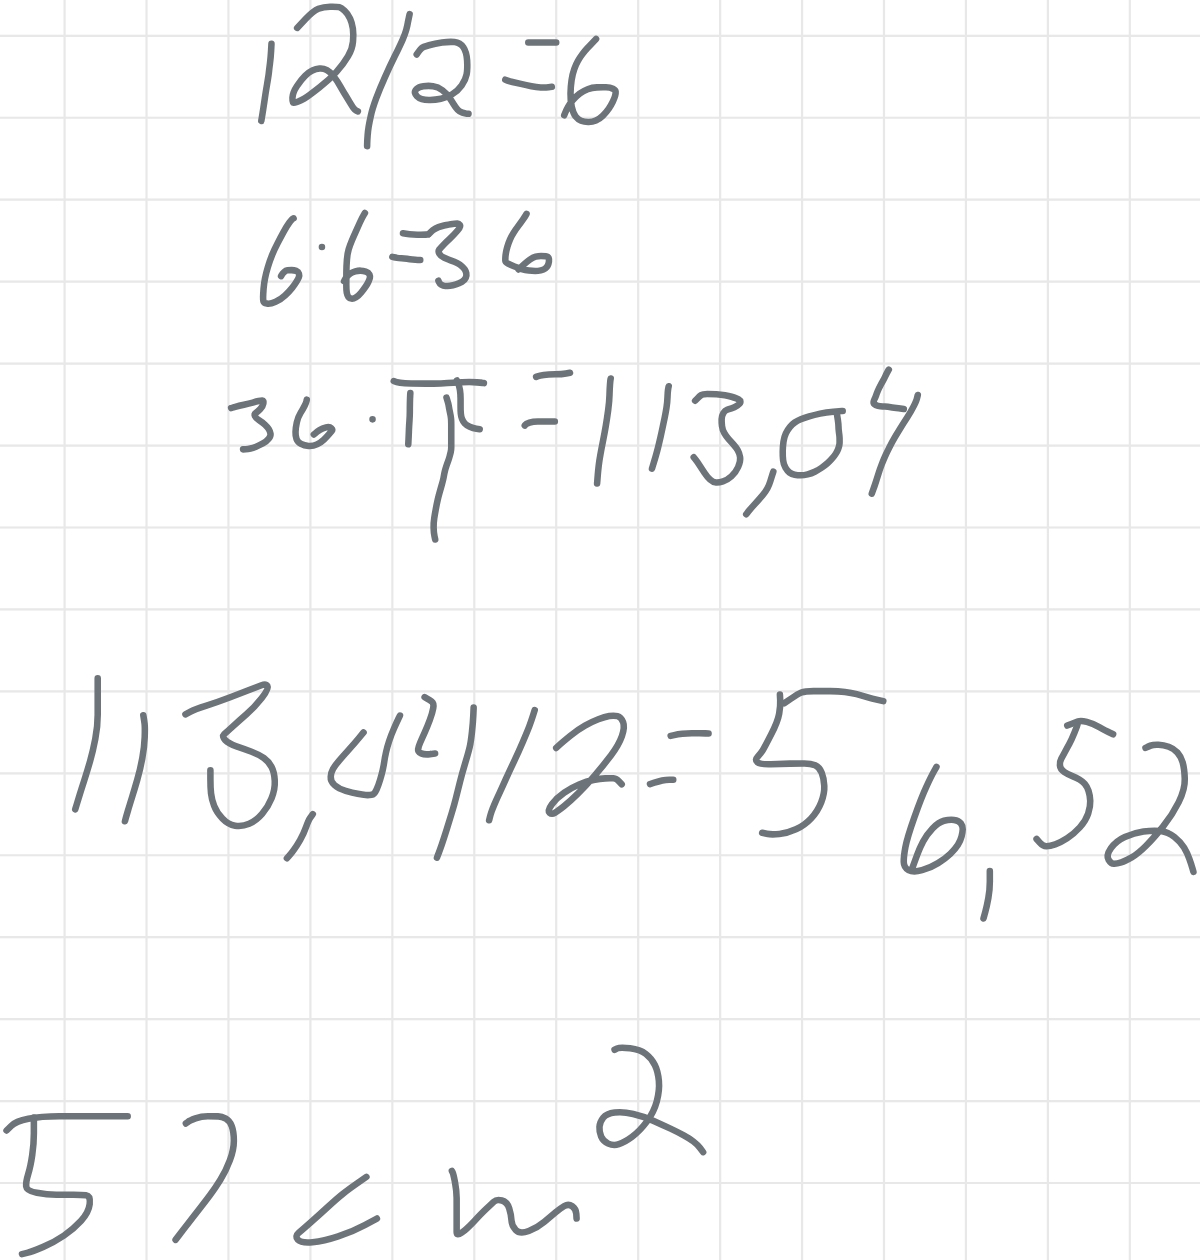 12/2=6
6·6=36
36·π=113,04
113,04/2=56,52
57cm²